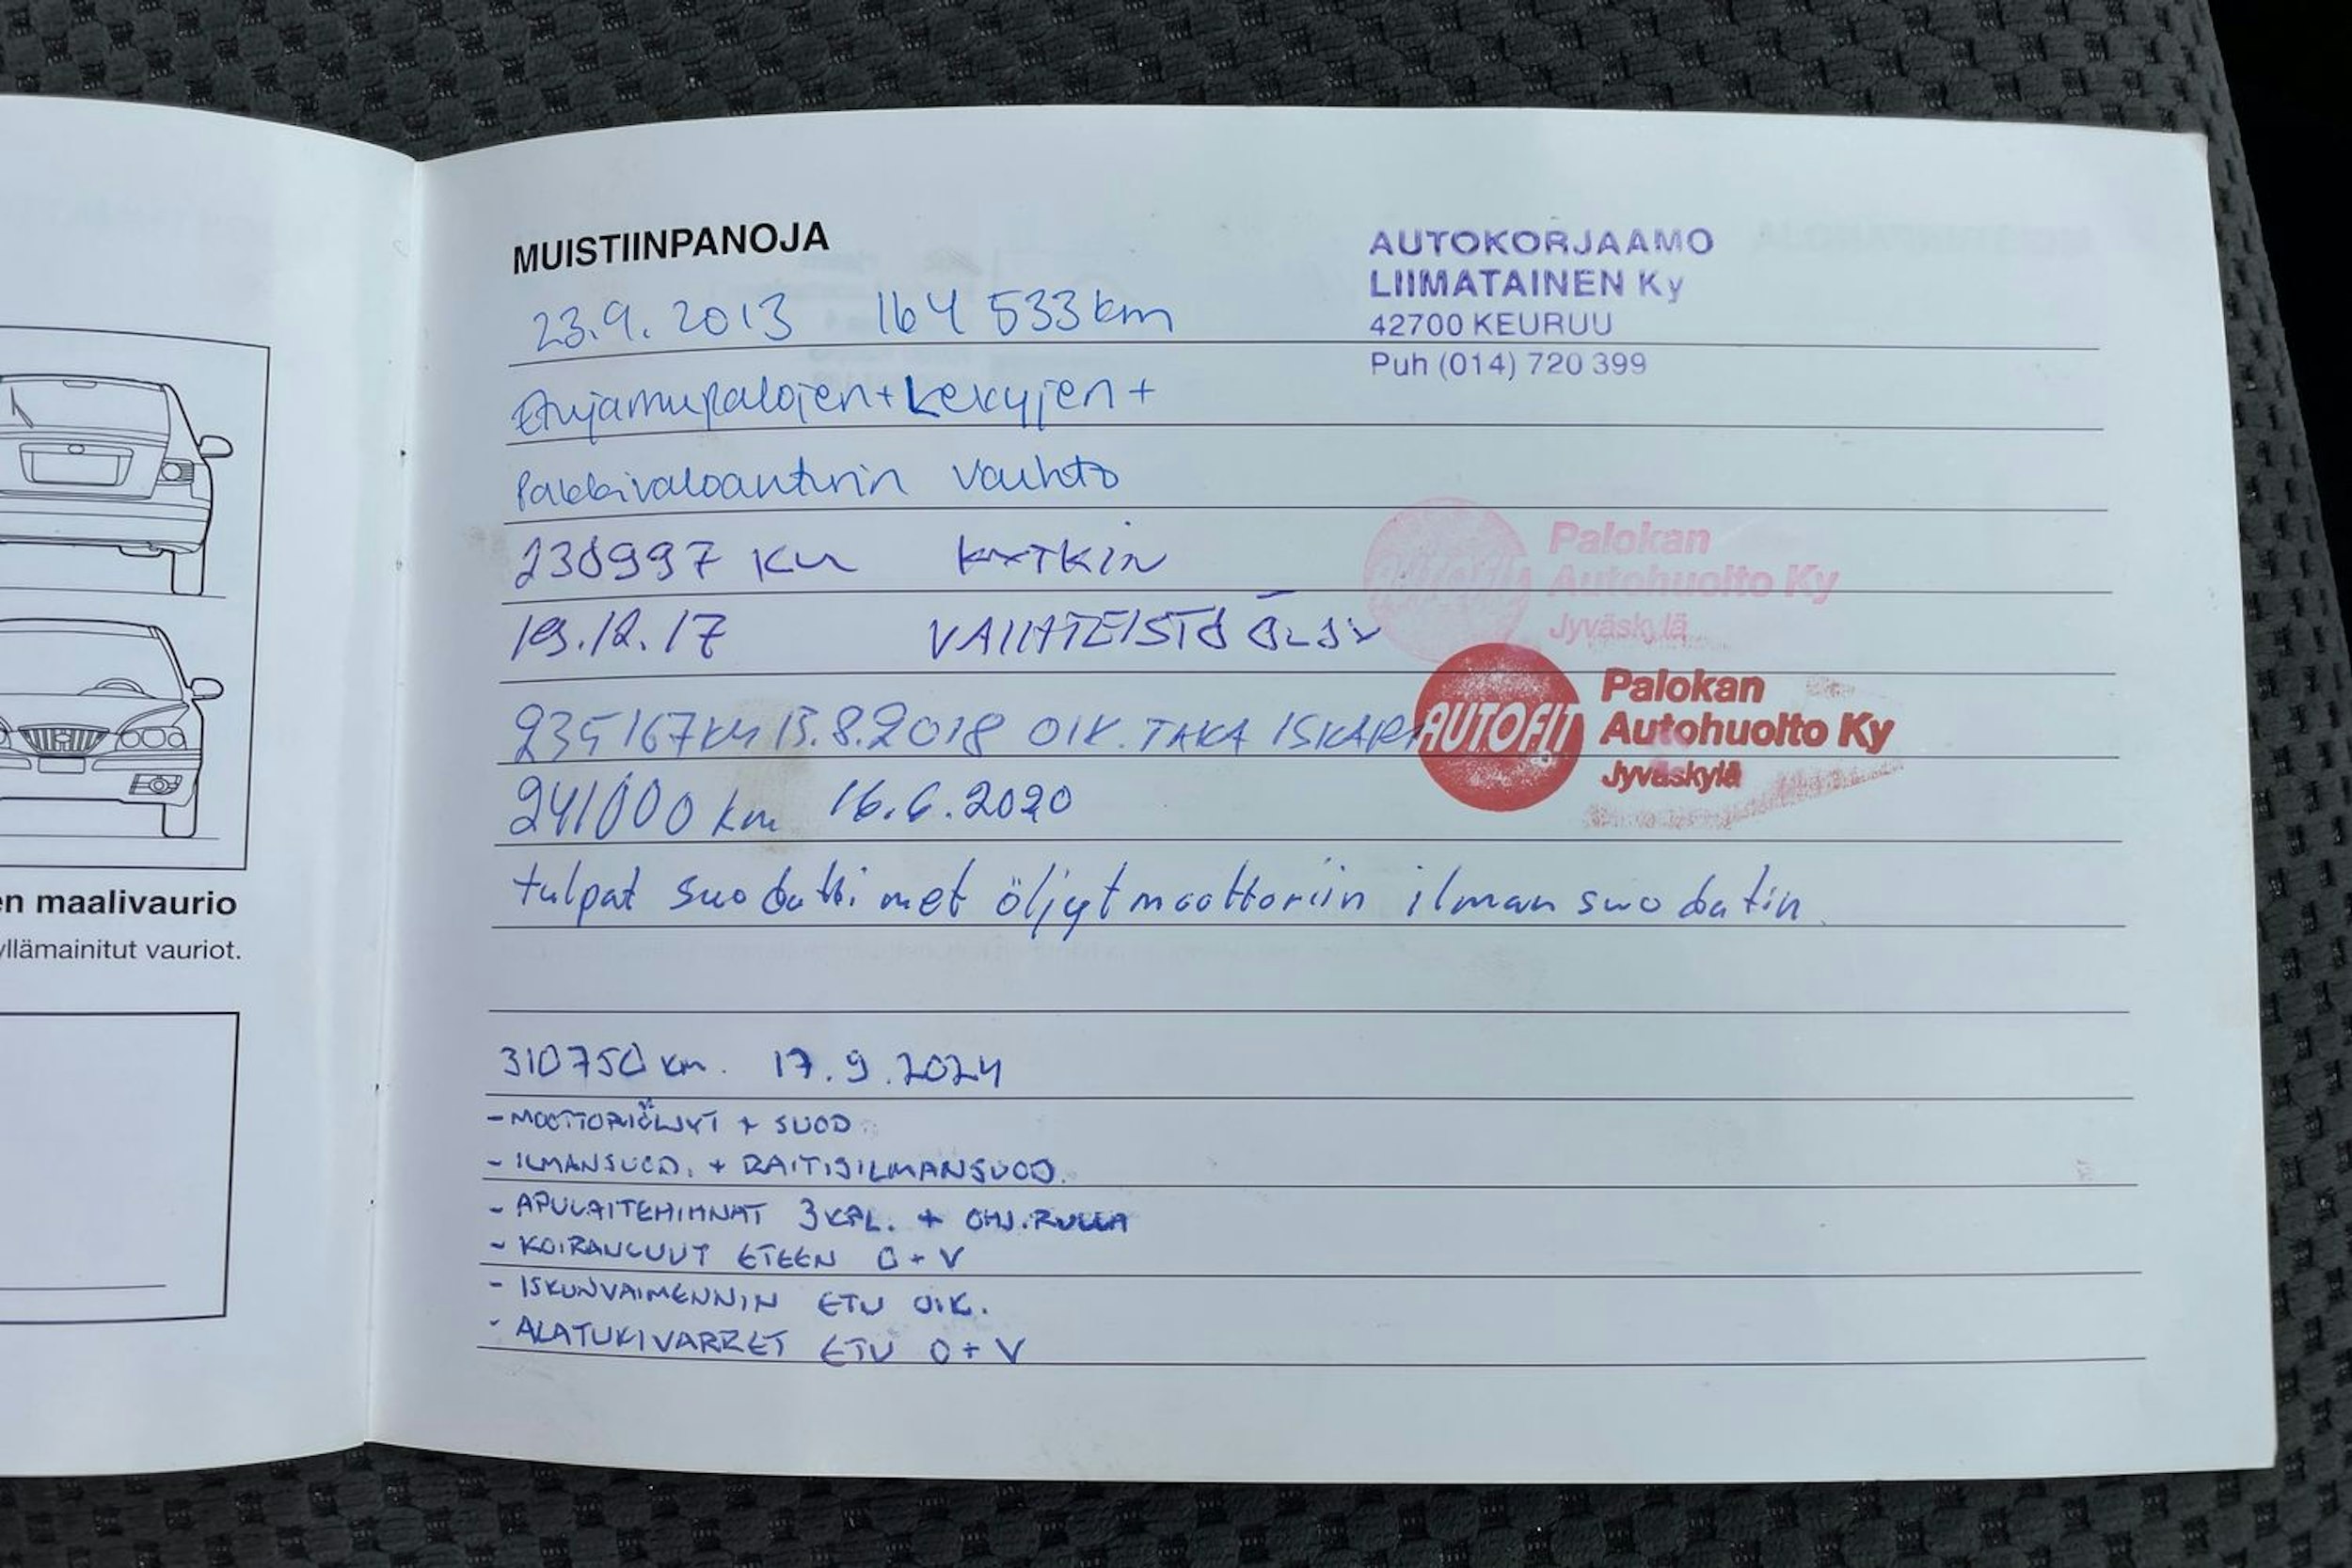 MUISTIINPANOJA
AUTOKORJAAMO
LIIMATAINEN Ky
42700 KEURUU
Puh (014) 720 399
23.9.2013 164 533 km
+
Pakkivaloanturin vaihto
230997 KM KYTKIN
19.12.17 VAIHTEISTÖ ÖLJY
Palokan
Autohuolto Ky
Jyväskylä
235167 KM 13.8.2018 OIK. TAKA ISKARI
AUTOFIT
Palokan
Autohuolto Ky
Jyväskylä
241000 km 16.6.2020
tulpat suodattimet öljyt moottoriin ilman suodatin
310750 km. 17.9.2024
- MOOTTORIÖLJYT + SUOD
- ILMANSUOD. + RAITISILMANSUOD.
- APULAITEHIHNAT 3 KPL. + OHJ.RULLA
- KOIRANLUUT ETEEN O + V
- ISKUNVAIMENNIN ETU OIK.
- ALATUKIVARRET ETU O + V
en maalivaurio
yllämainitut vauriot.